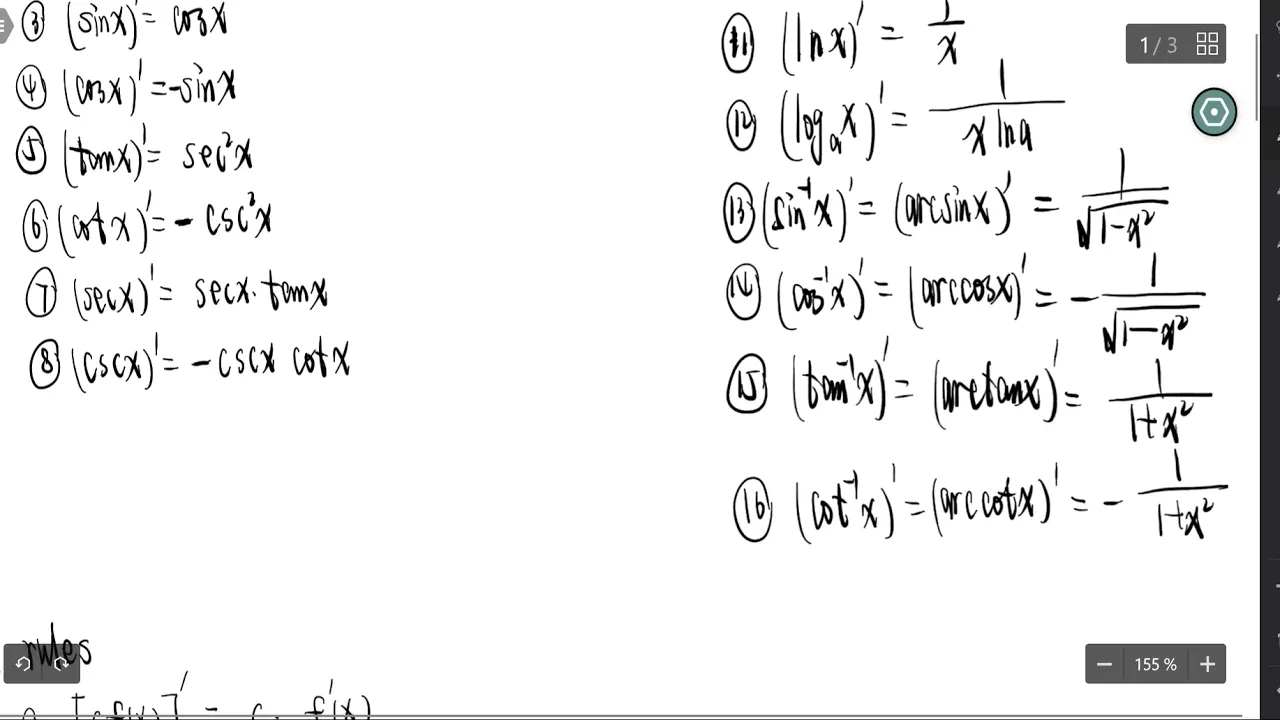 ③ (sinx)' = cosx
④ (cosx)' = -sinx
⑤ (tanx)' = sec²x
⑥ (cotx)' = - csc²x
⑦ (secx)' = secx · tanx
⑧ (cscx)' = - cscx cotx
rules
[cf(x)]' = c · f'(x)
⑪ (lnx)' = 1/x
⑫ (logₐx)' = 1/(x lna)
⑬ (sin⁻¹x)' = (arcsinx)' = 1/√(1-x²)
⑭ (cos⁻¹x)' = (arccosx)' = - 1/√(1-x²)
⑮ (tan⁻¹x)' = (arctanx)' = 1/(1+x²)
⑯ (cot⁻¹x)' = (arccotx)' = - 1/(1+x²)
1 / 3
155 %